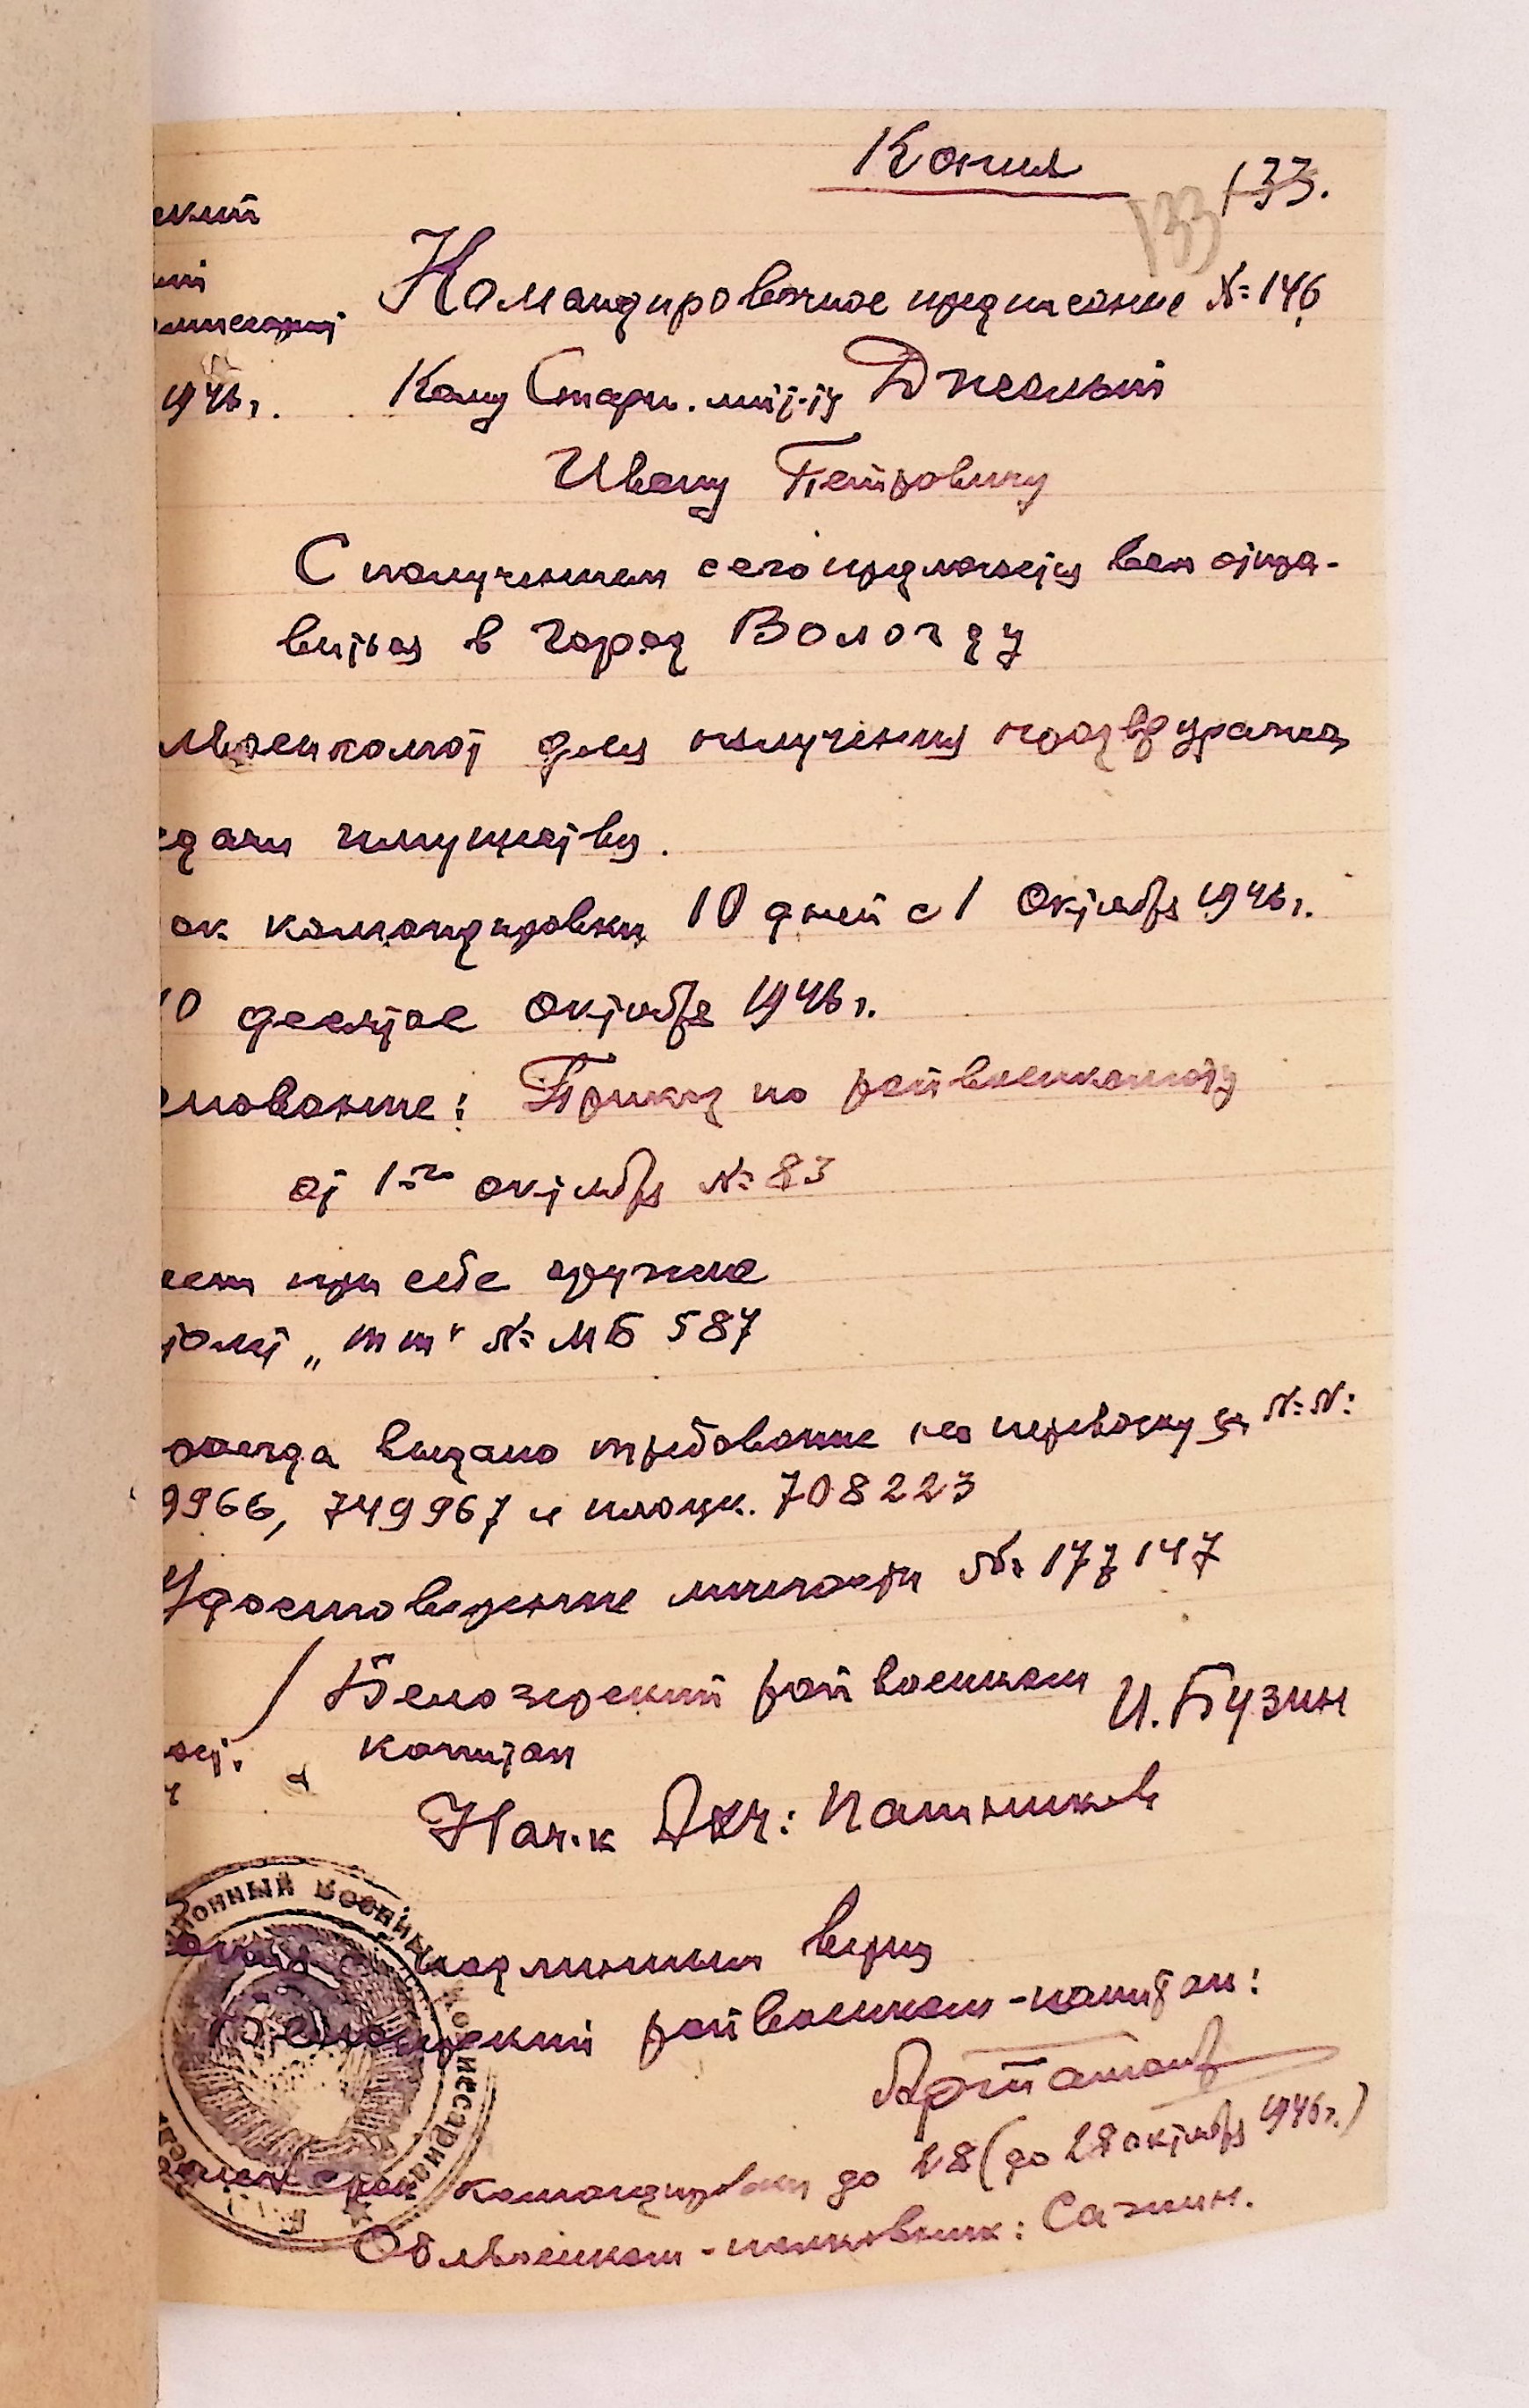 Копия
133.
133
ский
ный
омиссариат
1946г.
Командировочное предписание №146
Кому Старш. лий-ту
Ивану Петровичу
С получением сего предлагаю вам отпра-
виться в город Вологду
лвоенкомат для получения продвфуража
сдачи имущества.
ок командировки 10 дней с 1 Октября 1946г.
10 десятое октября 1946г.
снование: Приказ по райвоенкомату
от 1-го октября №83
меет при себе оружие
толет „тт" № МБ 587
роезда выдано требование на перевозку за №№:
9966, 749967 и плацк. 708223
Удостоверение личности № 177147
Белозерский райвоенком И. Бузин
капитан
Нач-к
районный военный комиссариат
подлинным верна
Белозерский райвоенком-капитан:
срок командировки до 28 (до 28 октября 1946г.)
Облвоенком-полковник: Сажин.